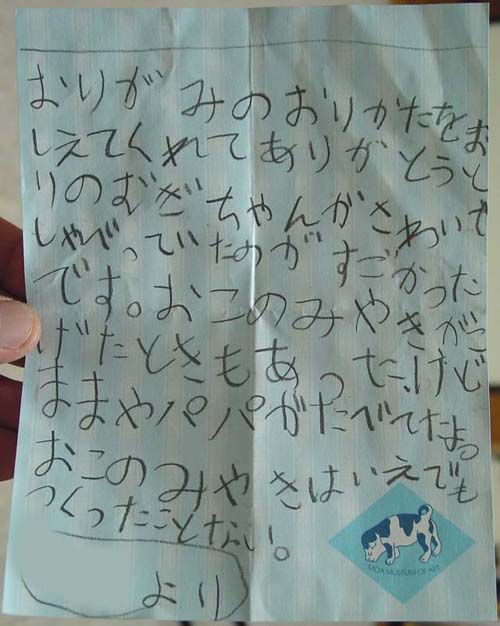 おりがみのおりかたをお
しえてくれてありがとうおと
りのむぎちゃんがさわいで
しゃべっていたのがすごかった
です。おこのみやきがこ
げたときもあった、けど
ままやパパがたべてたよ。
おこのみやきはいえでも
つくったことない。
より
MOA MUSEUM OF ART